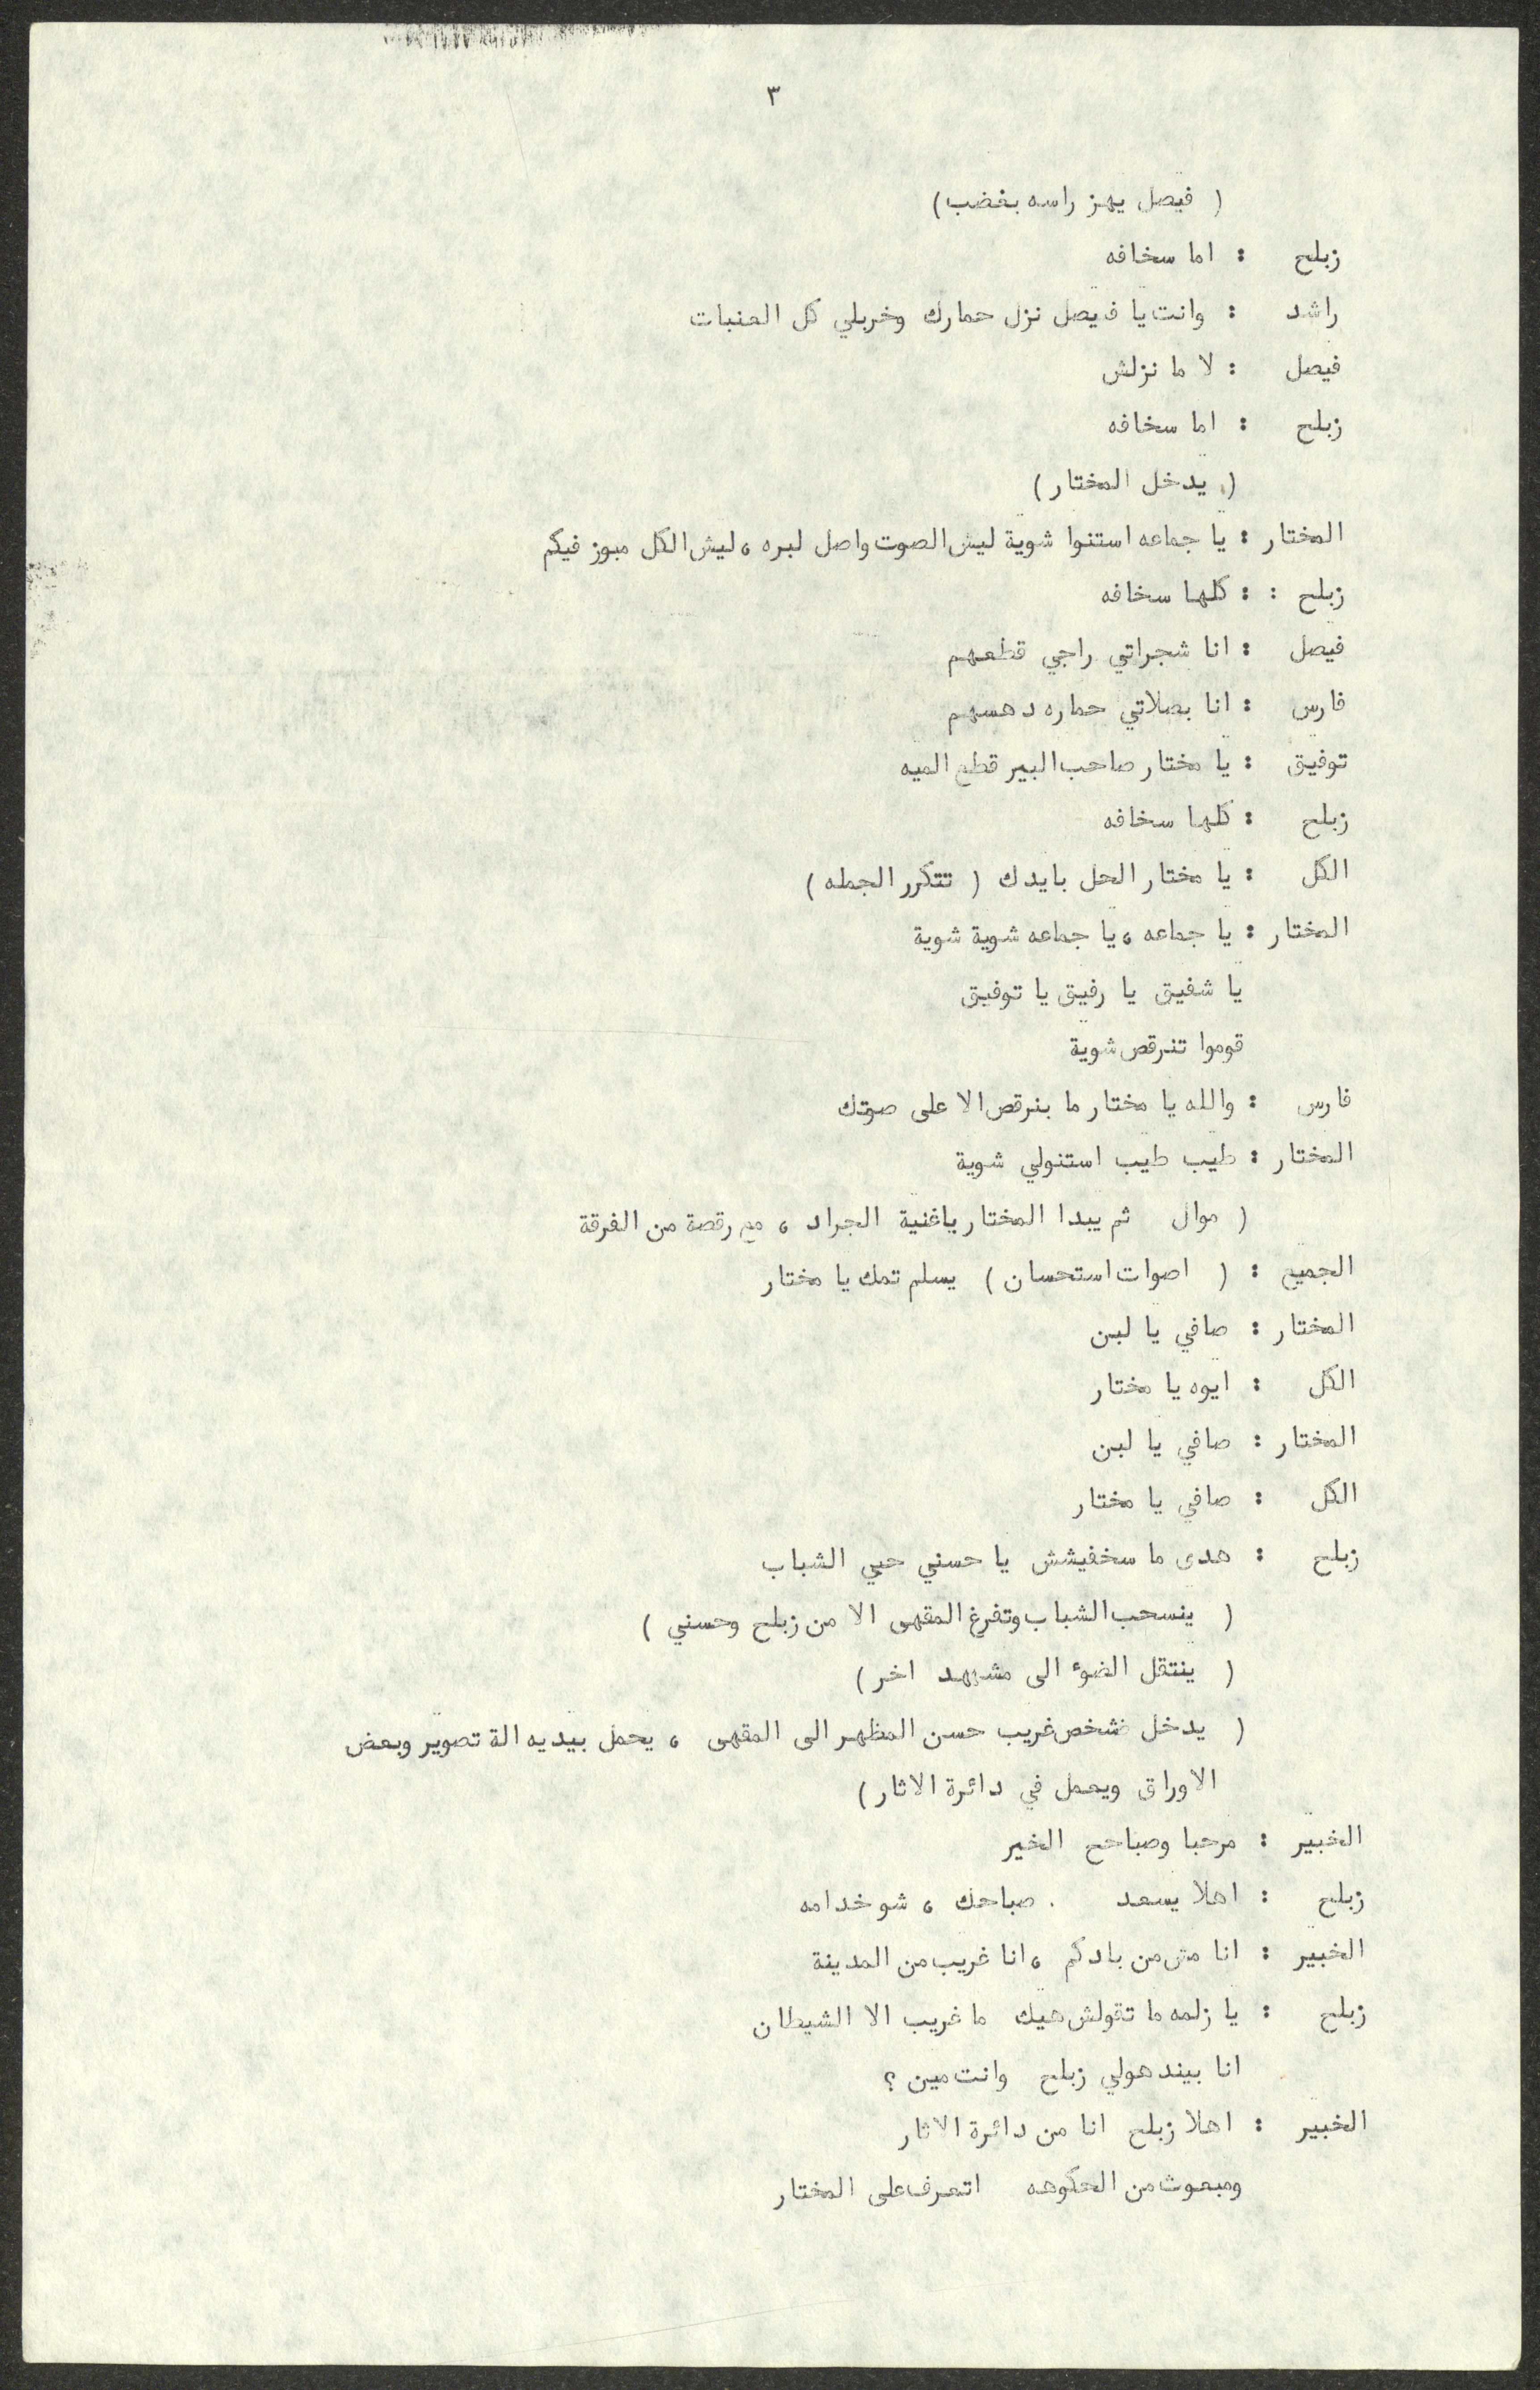 ٣
( فيصل يهز راسه بغضب)
زبلح : اما سخافه
راشد : وانت يا فيصل نزل حمارك وخربلي كل العنبات
فيصل : لا ما نزلش
زبلح : اما سخافه
( يدخل المختار )
المختار : يا جماعه استنوا شوية ليش الصوت واصل لبره ، ليش الكل مبوز فيكم
زبلح : : كلها سخافه
فيصل : انا شجراتي راجي قطعهم
فارس : انا بصلاتي حماره دهسهم
توفيق : يا مختار صاحب البير قطع الميه
زبلح : كلها سخافه
الكل : يا مختار الحل بايدك ( تتكرر الجمله )
المختار : يا جماعه ، يا جماعه شوية شوية
يا شفيق يا رفيق يا توفيق
قوموا تنرقص شوية
فارس : والله يا مختار ما بنرقص الا على صوتك
المختار : طيب طيب استنولي شوية
( موال ثم يبدا المختار ياغنية الجراد ، مع رقصة من الفرقة
الجميع : ( اصوات استحسان ) يسلم تمك يا مختار
المختار : صافي يا لبن
الكل : ايوه يا مختار
المختار : صافي يا لبن
الكل : صافي يا مختار
زبلح : هدى ما سخفيشش يا حسني حيي الشباب
( ينسحب الشباب وتفرغ المقهى الا من زبلح وحسني )
( ينتقل الضوء الى مشهد اخر )
( يدخل شخص غريب حسن المظهر الى المقهى ، يحمل بيديه الة تصوير وبعض
الاوراق ويعمل في دائرة الاثار )
الخبير : مرحبا وصباحح الخير
زبلح : اهلا يسعد . صباحك ، شو خدامه
الخبير : انا مش من بلدكم ، انا غريب من المدينة
زبلح : يا زلمه ما تقولش هيك ما غريب الا الشيطان
انا بيندهولي زبلح وانت مين ؟
الخبير : اهلا زبلح انا من دائرة الاثار
ومبعوث من الحكومه اتعرف على المختار